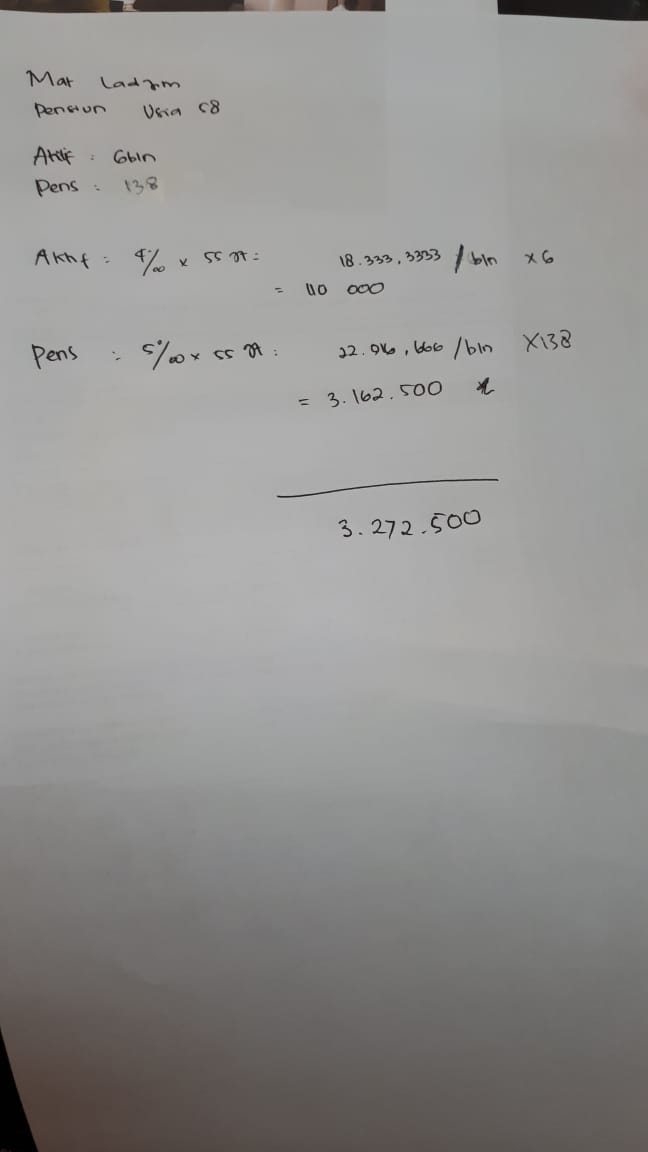 Mat Ladzim
Pensiun Usia 58
Aktif : 6bln
Pens : 138
Aktif : 4‰ x 55 jt = 18.333,3333 / bln x6
= 110 000
Pens : 5‰ x 55 jt : 22.916,666 /bln X138
= 3.162.500
3.272.500